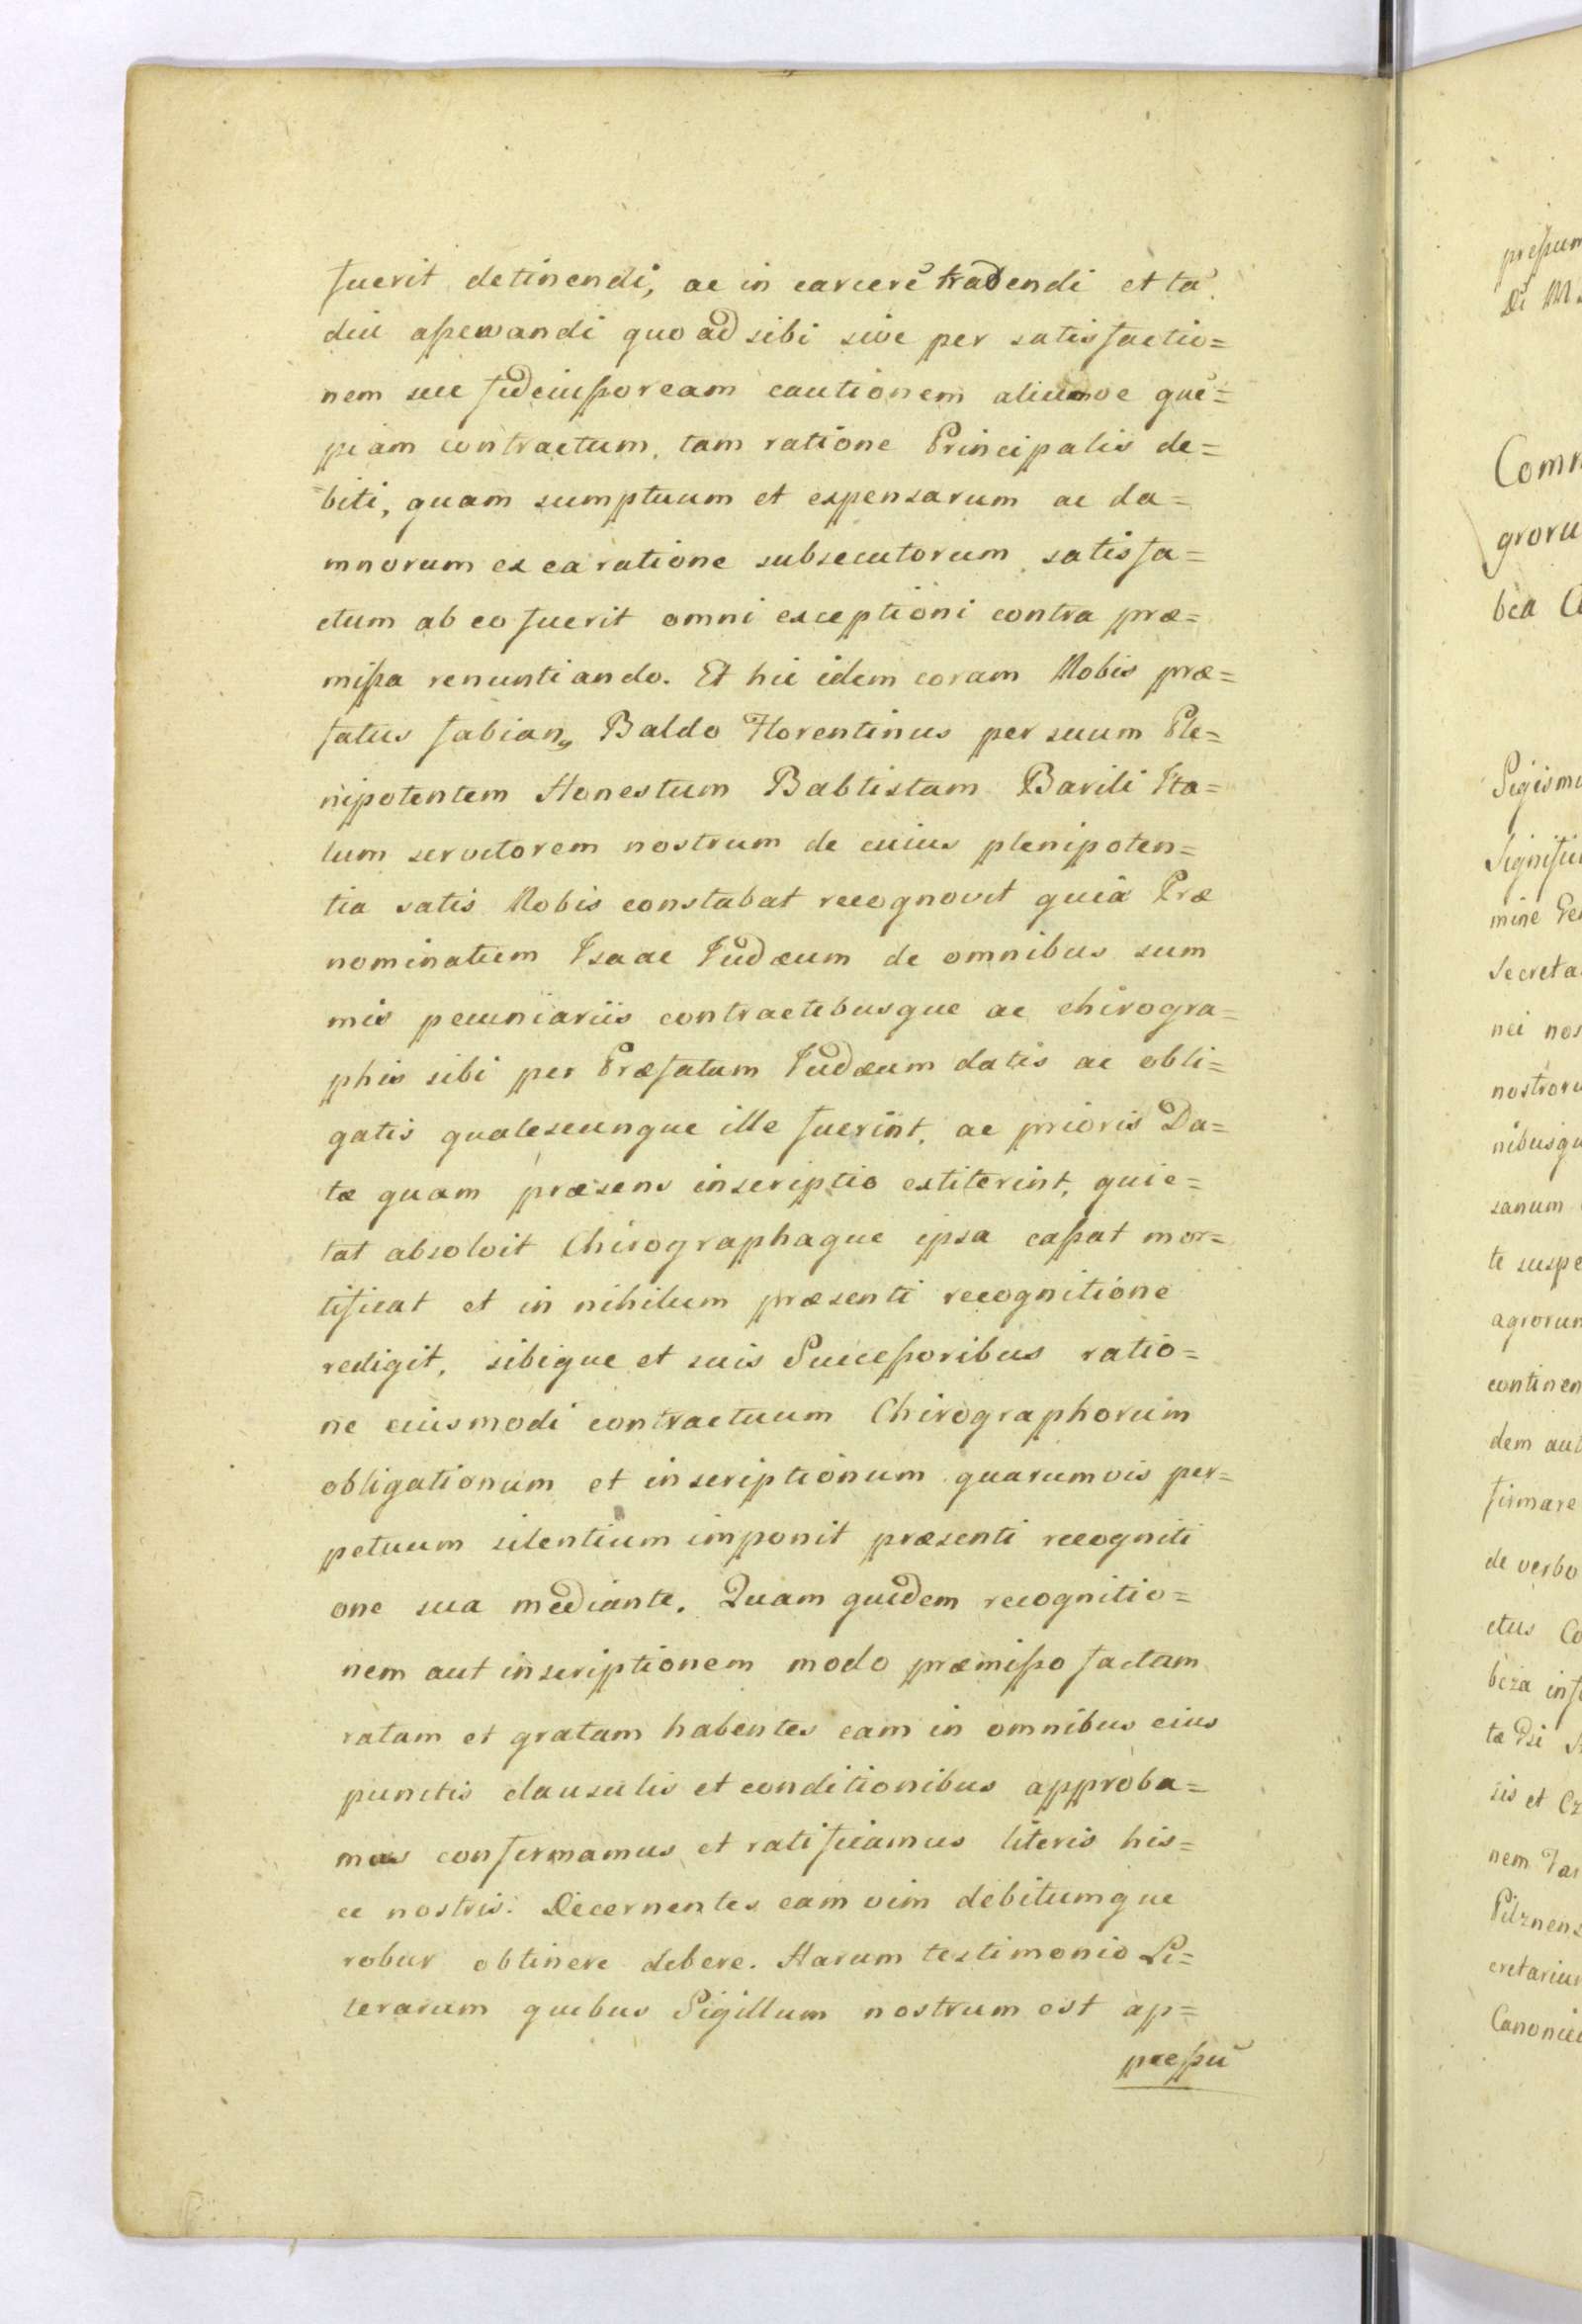 fuerit detinendi, ac in carcerē tradendi et tā
diu asservandi quo ad sibi sive per satisfactio=
nem seu fideiussoream cautionem aliumve quē=
piam contractum, tam ratione Principalis de=
biti, quam sumptuum et expensarum ac da=
mnorum ex ea ratione subsecutorum satisfa=
ctum ab eo fuerit omni exceptioni contra præ=
missa renuntiando. Et hic idem coram Nobis præ=
fatus Fabian9 Baldo Florentinus per suum Ple=
nipotentem Honestum Babtistam Barili Ita=
lum servitorem nostrum de cuius plenipoten=
tia satis Nobis constabat recognovit quia Præ
nominatum Isaac Iudæum de omnibus sum
mis pecuniariis contractibusque ac chirogra=
phis sibi per Præfatum Iudæum datis ac obli=
gatis qualescunque ille fuerint, ac prioris Da=
tæ quam præsens inscriptio extiterint, quie=
tat absolvit Chirographaque ipsa cassat mor=
tificat et in nihilum præsenti recognitione
redigit, sibique et suis Successoribus ratio=
ne eiusmodi contractuum Chirographorum
obligationum et inscriptionum quarumvis per=
petuum silentium imponit præsenti recogniti
one sua mediante. Quam quidem recognitio=
nem aut inscriptionem modo præmisso factam
ratam et gratam habentes eam in omnibus eius
punctis clausulis et conditionibus approba=
mus confirmamus et ratificamus literis his=
ce nostris. Decernentes eam vim debitumque
robur obtinere debere. Harum testimonio Li=
terarum quibus Sigillum nostrum est ap=
pressū
pressum
Comm
groru
bea
Sigismu
Significa
mine
Secreta
nei nos
nostroru
nibusqu
sanum
te suspe
agrorum
continen
dem aut
firmare
de verbo
ctus Co
beza inf
tæ
sis et Cz
nem Tar
Pilznens
cretarium
Canonici